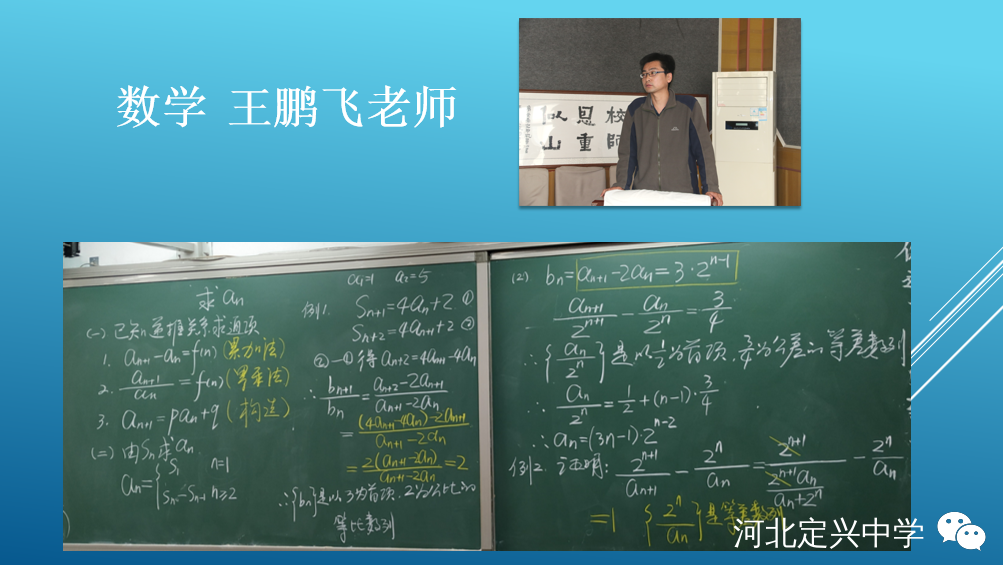 数学 王鹏飞老师
恩校
山重師
求an
(一)已知递推关系求通项
1. an+1-an=f(n)(累加法)
2. an+1/an=f(n)(累乘法)
3. an+1=pan+q(构造)
(二)由Sn求an
an={S1 n=1
Sn-Sn-1 n≥2
a1=1 a2=5
例1. Sn+1=4an+2 ①
Sn+2=4an+1+2 ②
②-①得 an+2=4an+1-4an
∴ bn+1/bn=(an+2-2an+1)/(an+1-2an)
=((4an+1-4an)-2an+1)/(an+1-2an)
=2(an+1-2an)/(an+1-2an)=2
∴{bn}是以3为首项,2为公比的
等比数列
(2) bn=an+1-2an=3·2^(n-1)
an+1/2^(n+1)-an/2^n=3/4
∴{an/2^n}是以1/2为首项,3/4为公差的等差数列
∴ an/2^n=1/2+(n-1)·3/4
∴an=(3n-1)·2^(n-2)
例2. 证明: 2^(n+1)/an+1-2^n/an=2^(n+1)/(2^(n+1)an/(an+2^n))-2^n/an
=1 {2^n/an}是等差数列
河北定兴中学